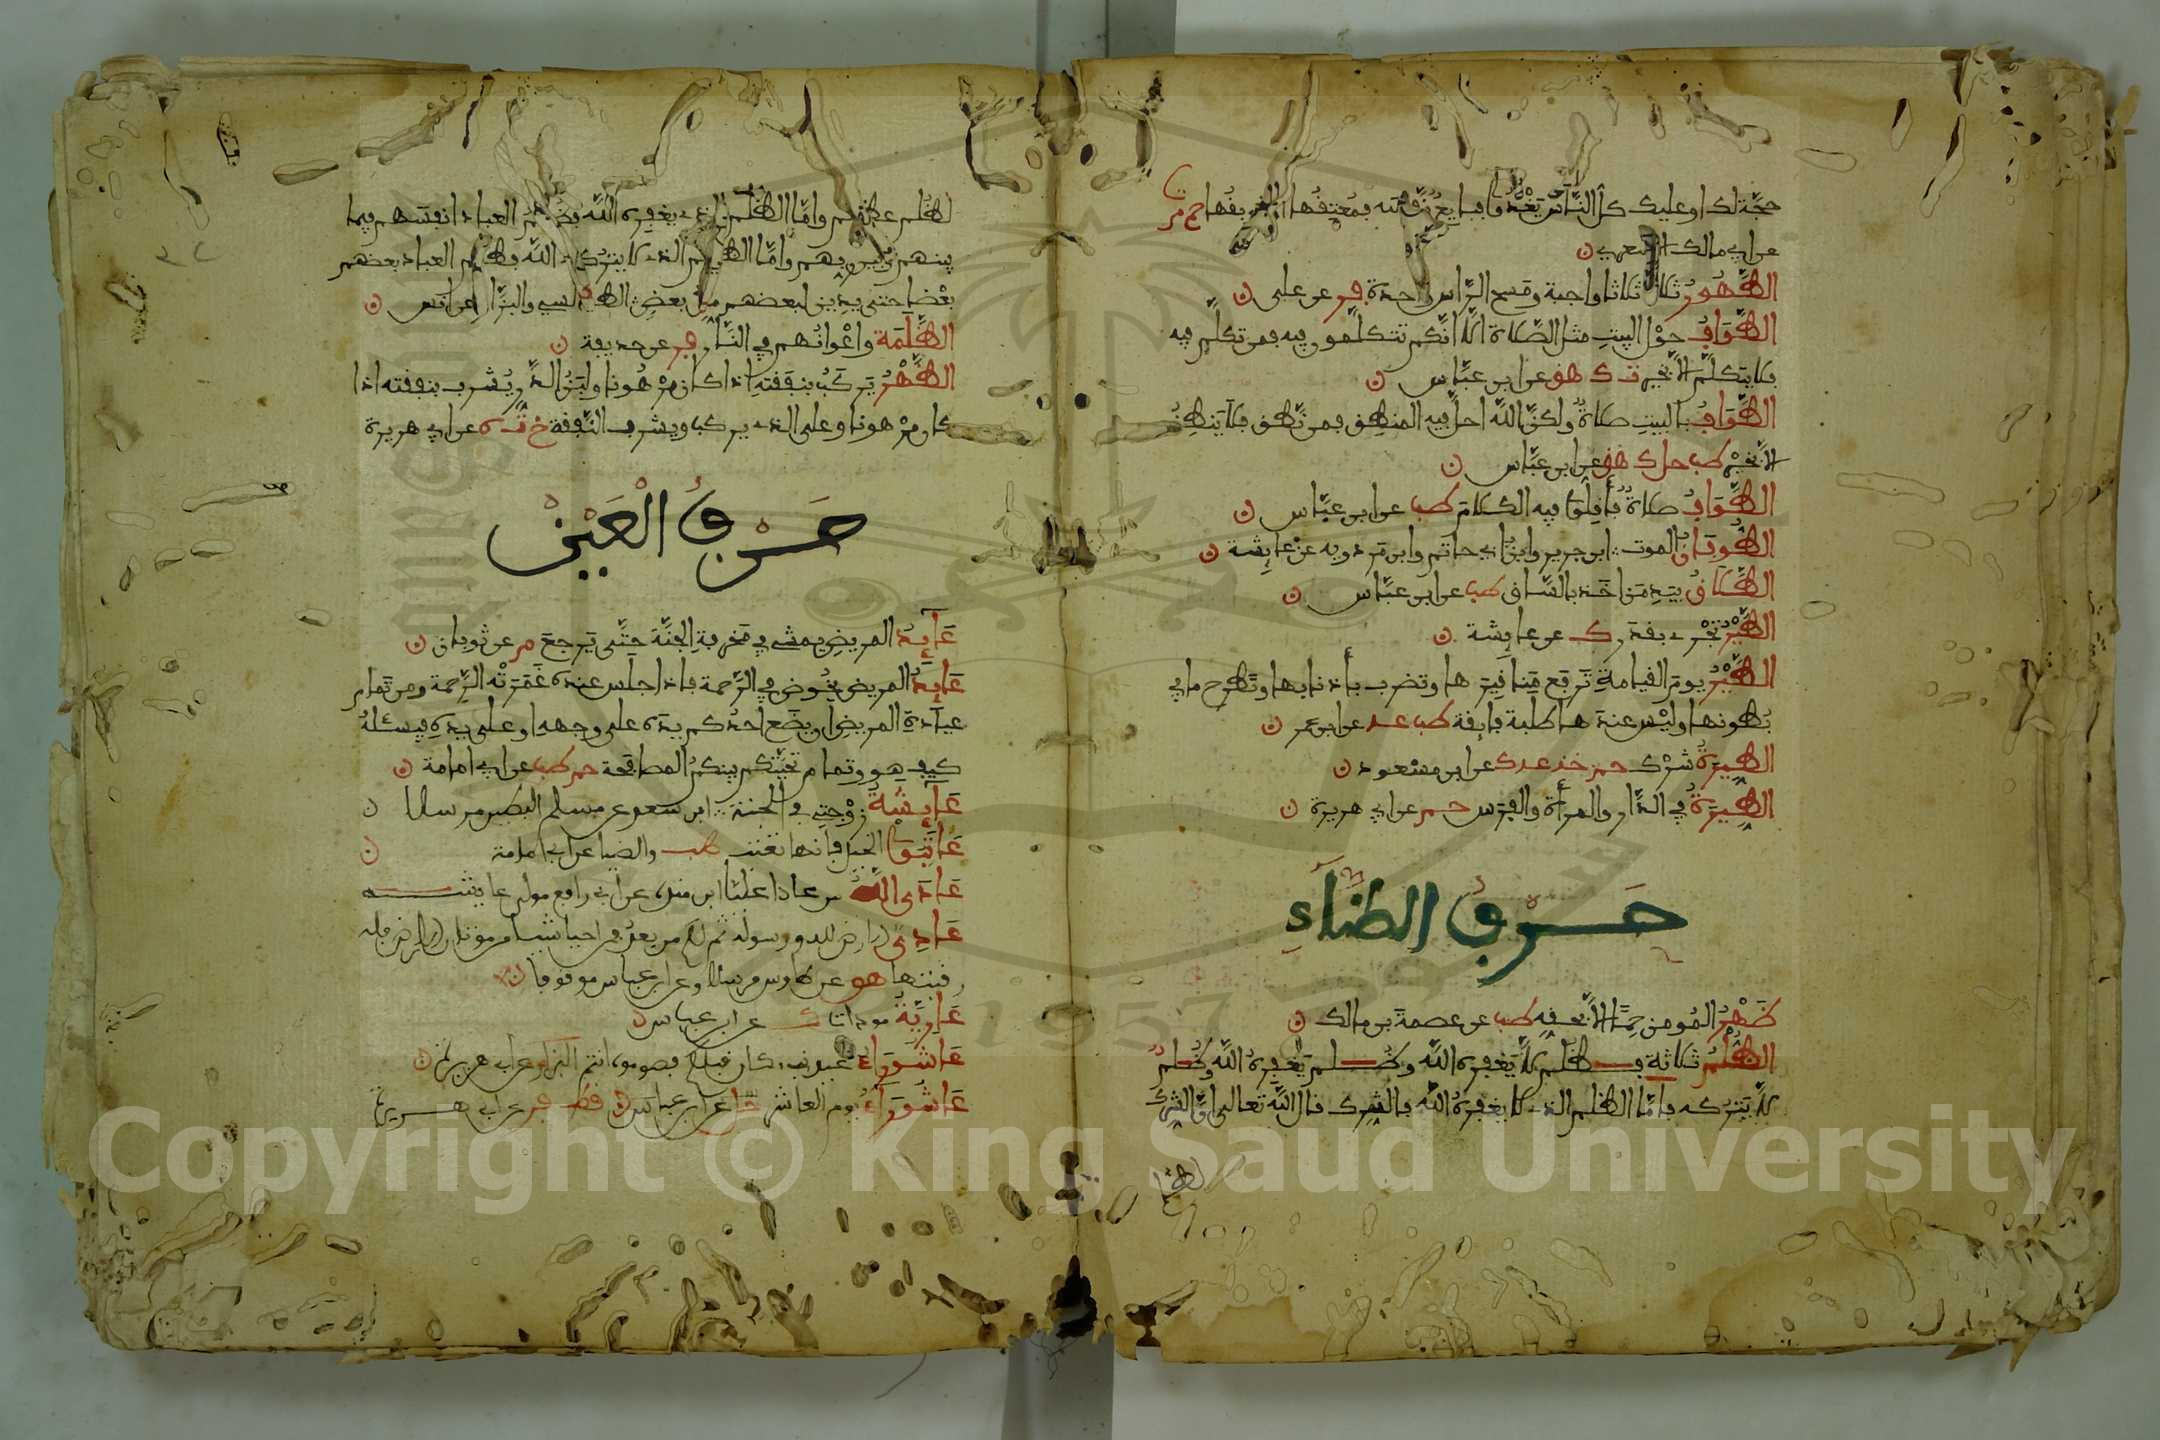 حجّة لك او عليك كل النّاس يغدوا فبايع نفسه فمعتقها او موبقها حم م ت
عن ابي مالك الاشعري
الطّهور ثلاثا ثلاثا واجبة ومسح الرّاس واحدة فر عن علي
الطّواف حول البيت مثل الصّلاة الا انّكم تتكلّمون فيه فمن تكلّم فيه
فلا يتكلّم الا بخير ت ك هق عن ابن عبّاس
الطّواف بالبيت صلاة ولكنّ الله احلّ فيه المنطق فمن نطق فلا ينطق
الا بخير طب حل ك هق عن ابن عبّاس
الطّواف صلاة فأقلّوا فيه الكلام طب عن ابن عبّاس
الطّوفان الموت ابن جرير وابن ابي حاتم وابن مردويه عن عايشة
الطّلاق بيد من اخذ بالسّاق طب عن ابن عبّاس
الطّير تجري بقدر ك عن عايشة
الطّير يوم القيامة ترفع مناقيرها وتضرب بأذنابها وتطرح ما في
بطونها وليس عندها طلبة فاتقه طب عد عن ابن عمر
الطّيرة شرك حم خد عد ك عن ابن مسعود
الطّيرة في الدّار والمرأة والفرس حم عن ابي هريرة
حرف الظّاء
ظهر المومن حمّى الا بحقه طب عن عصمة بن مالك
الظّلم ثلاثة فظلم لا يغفره الله وظلم يغفره الله وظلم
لا يتركه فأمّا الظلم الذي لا يغفره الله فالشرك قال الله تعالى انّ الشرك
لظلم
لظلم عظيم وامّا الظّلم الذي يغفره الله فظلم العباد انفسهم فيما
بينهم وبين ربهم وامّا الظلم الذي لا يتركه الله فظلم العباد بعضهم
بعضا حتى يدين لبعضهم من بعض الطيالسي والبزّار عن انس
الظّلمة واعوانهم في النّار فر عن حذيفة
الظّهر يركب بنفقته اذا كان مرهونا ولبن الدّر يشرب بنفقته اذا
كان مرهونا وعلى الذي يركب ويشرب النّفقة خ ت ه عن ابي هريرة
حرف العين
عايد المريض يمشي في مخرفة الجنّة حتّى يرجع م عن ثوبان
عايد المريض يخوض في الرّحمة فاذا جلس عنده غمرته الرّحمة ومن تمام
عيادة المريض ان يضع احدكم يده على وجهه او على يده فيسئله
كيف هو وتمام تحيّتكم بينكم المصافحة حم طب عن ابي امامة
عايشة زوجتي في الجنة ابن سعد عن مسلم البطين مرسلا
عاتبوا الخيل فانها تعتب طب والضيا عن ابي امامة
عادى الله من عادا عليّا ابن منده عن ابي رافع مولى عايشه
عادي الارض لله ورسوله ثم لكم من بعد فمن احيا شيا من موتان الارض فله
رقبتها هو عن طاوس مرسلا وعن ابن عباس موقوفا
عارية موداة ك عن ابن عباس
عاشوراء عيد نبي كان قبلكم فصوموه انتم البزار عن ابي هريرة
عاشوراء يوم العاشر قط فر عن ابي هريرة